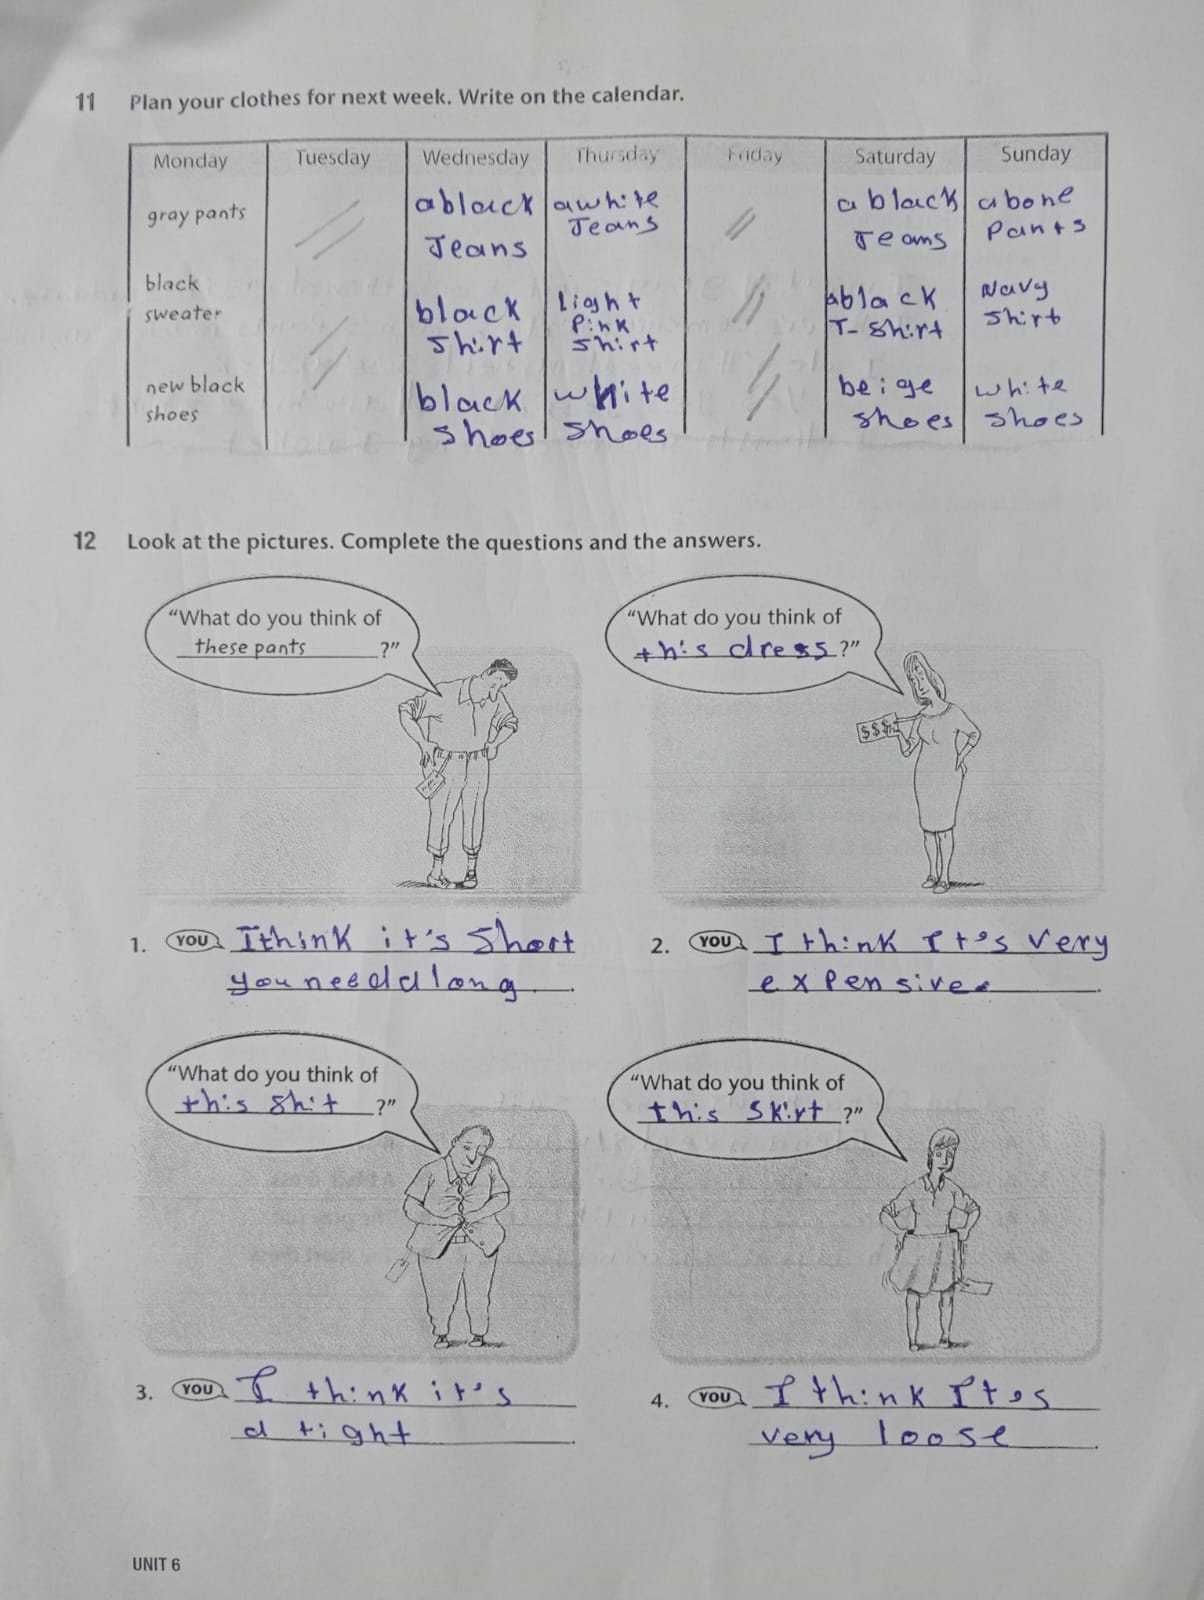 11 Plan your clothes for next week. Write on the calendar.
Monday Tuesday Wednesday Thursday Friday Saturday Sunday
gray pants
a black
Jeans
a white
Jeans
a black
Jeans
a bone
Pants
black
sweater
black
shirt
Light
Pink
shirt
a black
T-shirt
Navy
shirt
new black
shoes
black
shoes
white
shoes
beige
shoes
white
shoes
12 Look at the pictures. Complete the questions and the answers.
“What do you think of
these pants ?”
“What do you think of
this dress ?”
$$$
1. YOU I think it's Short
you need a long .
2. YOU I think It's very
expensive .
“What do you think of
this shit ?”
“What do you think of
this skirt ?”
3. YOU I think it's
a tight .
4. YOU I think It's
very loose .
UNIT 6